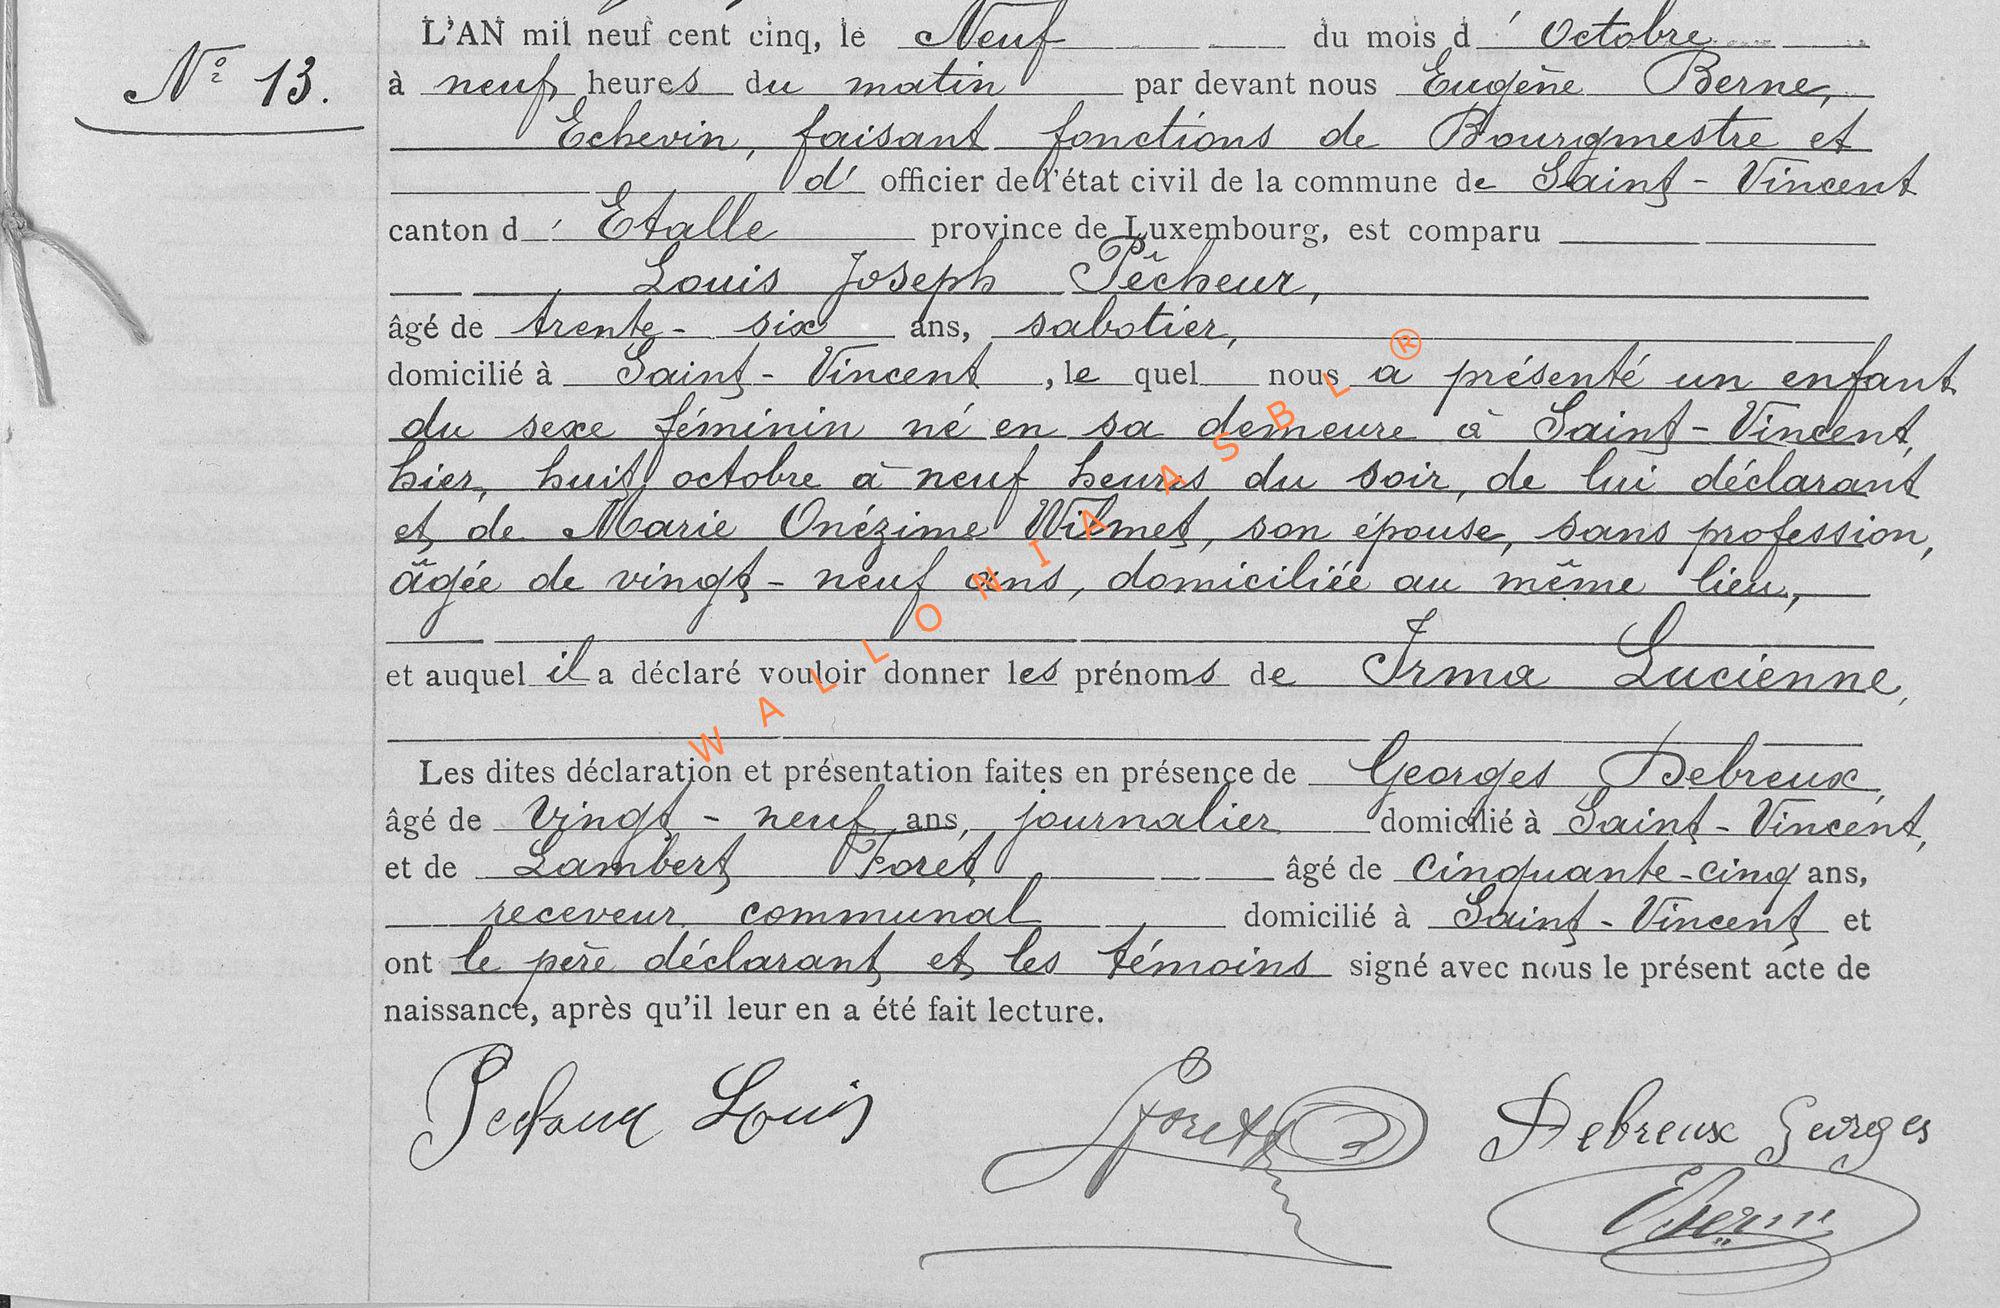 L'AN mil neuf cent cinq, le Neuf du mois d' Octobre
N° 13.
à neuf heures du matin par devant nous Eugène Berne,
Echevin, faisant fonctions de Bourgmestre et
d' officier de l'état civil de la commune de Saint-Vincent
canton d' Etalle province de Luxembourg, est comparu
Louis Joseph Pêcheur,
âgé de trente-six ans, sabotier,
domicilié à Saint-Vincent, le quel nous a présenté un enfant
du sexe féminin né en sa demeure à Saint-Vincent,
hier, huit octobre à neuf heures du soir, de lui déclarant
et de Marie Onézime Wilmet, son épouse, sans profession,
âgée de vingt-neuf ans, domiciliée au même lieu,
et auquel il a déclaré vouloir donner les prénoms de Irma Lucienne,
Les dites déclaration et présentation faites en présence de Georges Debreux,
âgé de vingt-neuf ans, journalier domicilié à Saint-Vincent,
et de Lambert Foret âgé de cinquante-cinq ans,
receveur communal domicilié à Saint-Vincent et
ont le père déclarant et les témoins signé avec nous le présent acte de
naissance, après qu'il leur en a été fait lecture.
Pecheur Louis LForet Debreux Georges
EBerne
WALLONIA ASBL ®